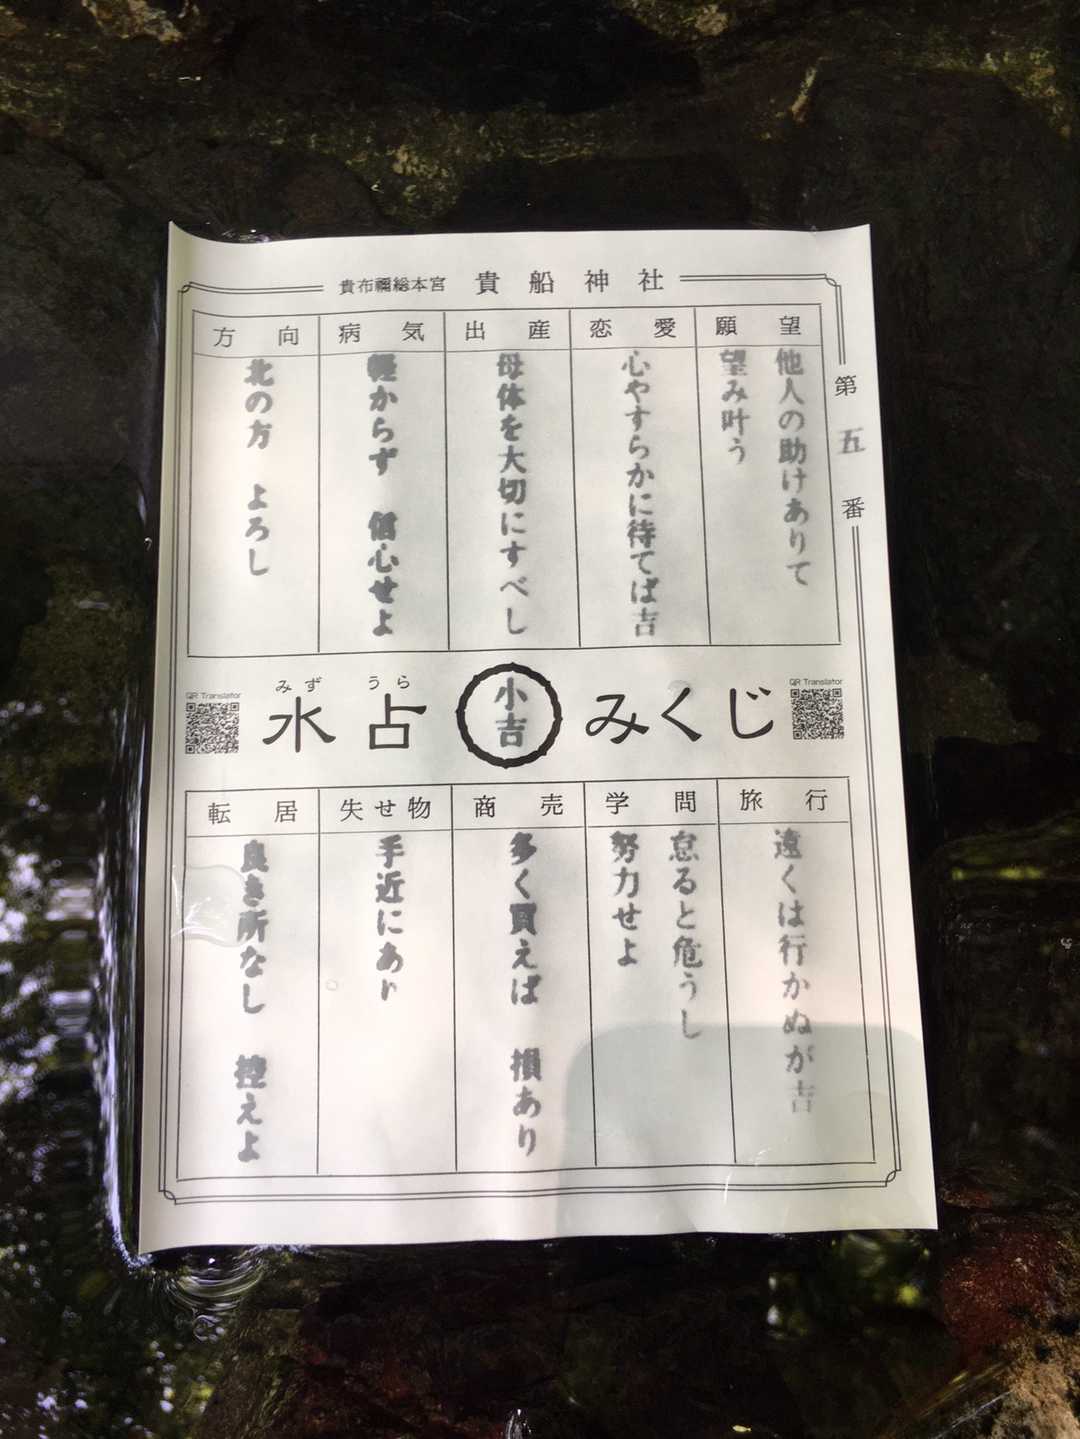 貴布禰総本宮 貴船神社
第五番
願望
他人の助けありて
望み叶う
恋愛
心やすらかに待てば吉
出産
母体を大切にすべし
病気
軽からず 信心せよ
方向
北の方 よろし
QR Translator
みずうら
水占
小吉
みくじ
QR Translator
旅行
遠くは行かぬが吉
学問
怠ると危うし
努力せよ
商売
多く買えば 損あり
失せ物
手近にあり
転居
良き所なし 控えよ